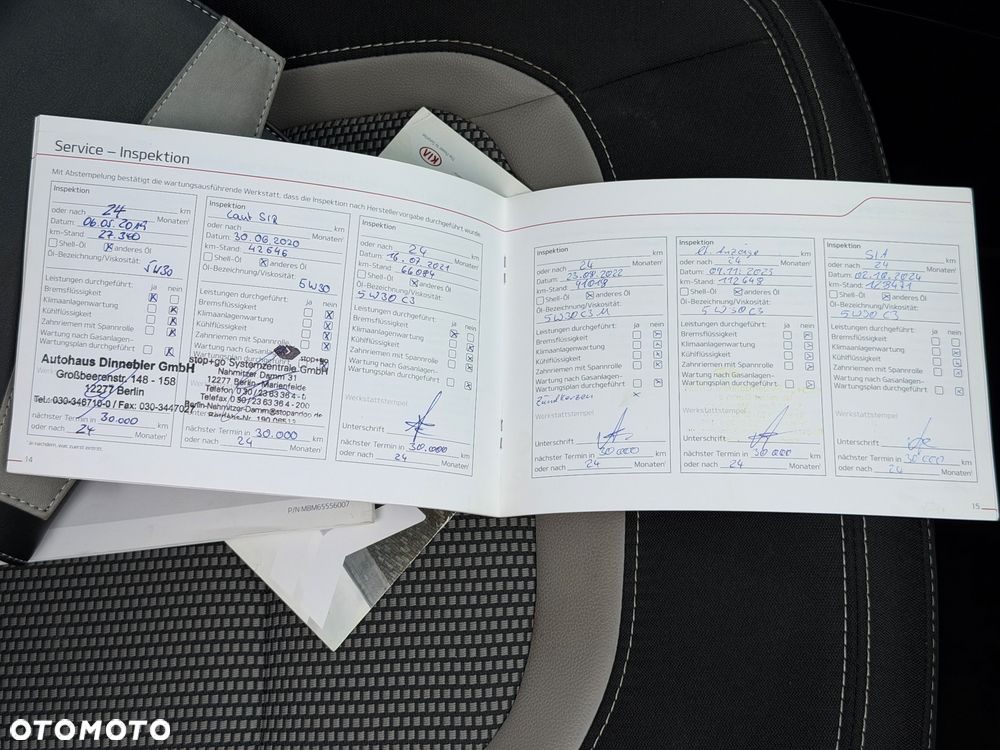 KIA
Service – Inspektion
Mit Abstempelung bestätigt die wartungsausführende Werkstatt, dass die Inspektion nach Herstellervorgabe durchgeführt wurde.
Inspektion
oder nach 24 Monaten
km
Datum: 06.05.2019
km-Stand: 27.340
Shell-Öl anderes Öl
Öl-Bezeichnung/Viskosität:
5W30
Leistungen durchgeführt: ja nein
Bremsflüssigkeit
Klimaanlagenwartung
Kühlflüssigkeit
Zahnriemen mit Spannrolle
Wartung nach Gasanlagen-
Wartungsplan durchgeführt
Autohaus Dinnebier GmbH
Großbeerenstr. 148 - 158
12277 Berlin
nächster Termin in 30.000 km
oder nach 24 Monaten
Je nachdem, was zuerst eintritt.
14
Inspektion
Laut SIA
oder nach Monaten
km
Datum: 30.06.2020
km-Stand: 42646
Shell-Öl anderes Öl
Öl-Bezeichnung/Viskosität:
5W30
Leistungen durchgeführt: ja nein
Bremsflüssigkeit
Klimaanlagenwartung
Kühlflüssigkeit
Zahnriemen mit Spannrolle
Wartung nach Gasanlagen-
stop+go Systemzentrale GmbH
Nahmitzer Damm 31
12277 Berlin-Marienfelde
nächster Termin in 30.000 km
oder nach 24 Monaten
Inspektion
km
oder nach 24 Monaten
Datum: 16.07.2021
km-Stand: 66084
Shell-Öl anderes Öl
Öl-Bezeichnung/Viskosität:
5W30 C3
Leistungen durchgeführt: ja nein
Bremsflüssigkeit
Klimaanlagenwartung
Kühlflüssigkeit
Zahnriemen mit Spannrolle
Wartung nach Gasanlagen-
Wartungsplan durchgeführt
Werkstattstempel
Unterschrift
nächster Termin in 30.000 km
oder nach 24 Monaten
Inspektion
km
oder nach 24 Monaten
Datum: 23.08.2022
km-Stand: 91018
Shell-Öl anderes Öl
Öl-Bezeichnung/Viskosität:
5W30 C3
Leistungen durchgeführt: ja nein
Bremsflüssigkeit
Klimaanlagenwartung
Kühlflüssigkeit
Zahnriemen mit Spannrolle
Wartung nach Gasanlagen-
Wartungsplan durchgeführt
Zündkerzen
Werkstattstempel
Unterschrift
nächster Termin in 30 000 km
oder nach 24 Monaten
Inspektion
Anzeige km
oder nach 24 Monaten
Datum: 09.11.2023
km-Stand: 112648
Shell-Öl anderes Öl
Öl-Bezeichnung/Viskosität:
5W30 C3
Leistungen durchgeführt: ja nein
Bremsflüssigkeit
Klimaanlagenwartung
Kühlflüssigkeit
Zahnriemen mit Spannrolle
Wartung nach Gasanlagen-
Wartungsplan durchgeführt
Werkstattstempel
Unterschrift
nächster Termin in 30 000 km
oder nach 24 Monaten
Inspektion
SIA km
oder nach 24 Monaten
Datum: 02.10.2024
km-Stand: 128471
Shell-Öl anderes Öl
Öl-Bezeichnung/Viskosität:
5W30 C3
Leistungen durchgeführt: ja nein
Bremsflüssigkeit
Klimaanlagenwartung
Kühlflüssigkeit
Zahnriemen mit Spannrolle
Wartung nach Gasanlagen-
Wartungsplan durchgeführt
Werkstattstempel
Unterschrift
nächster Termin in 30 000 km
oder nach 24 Monaten
15
P/N MBM65556007
OTOMOTO